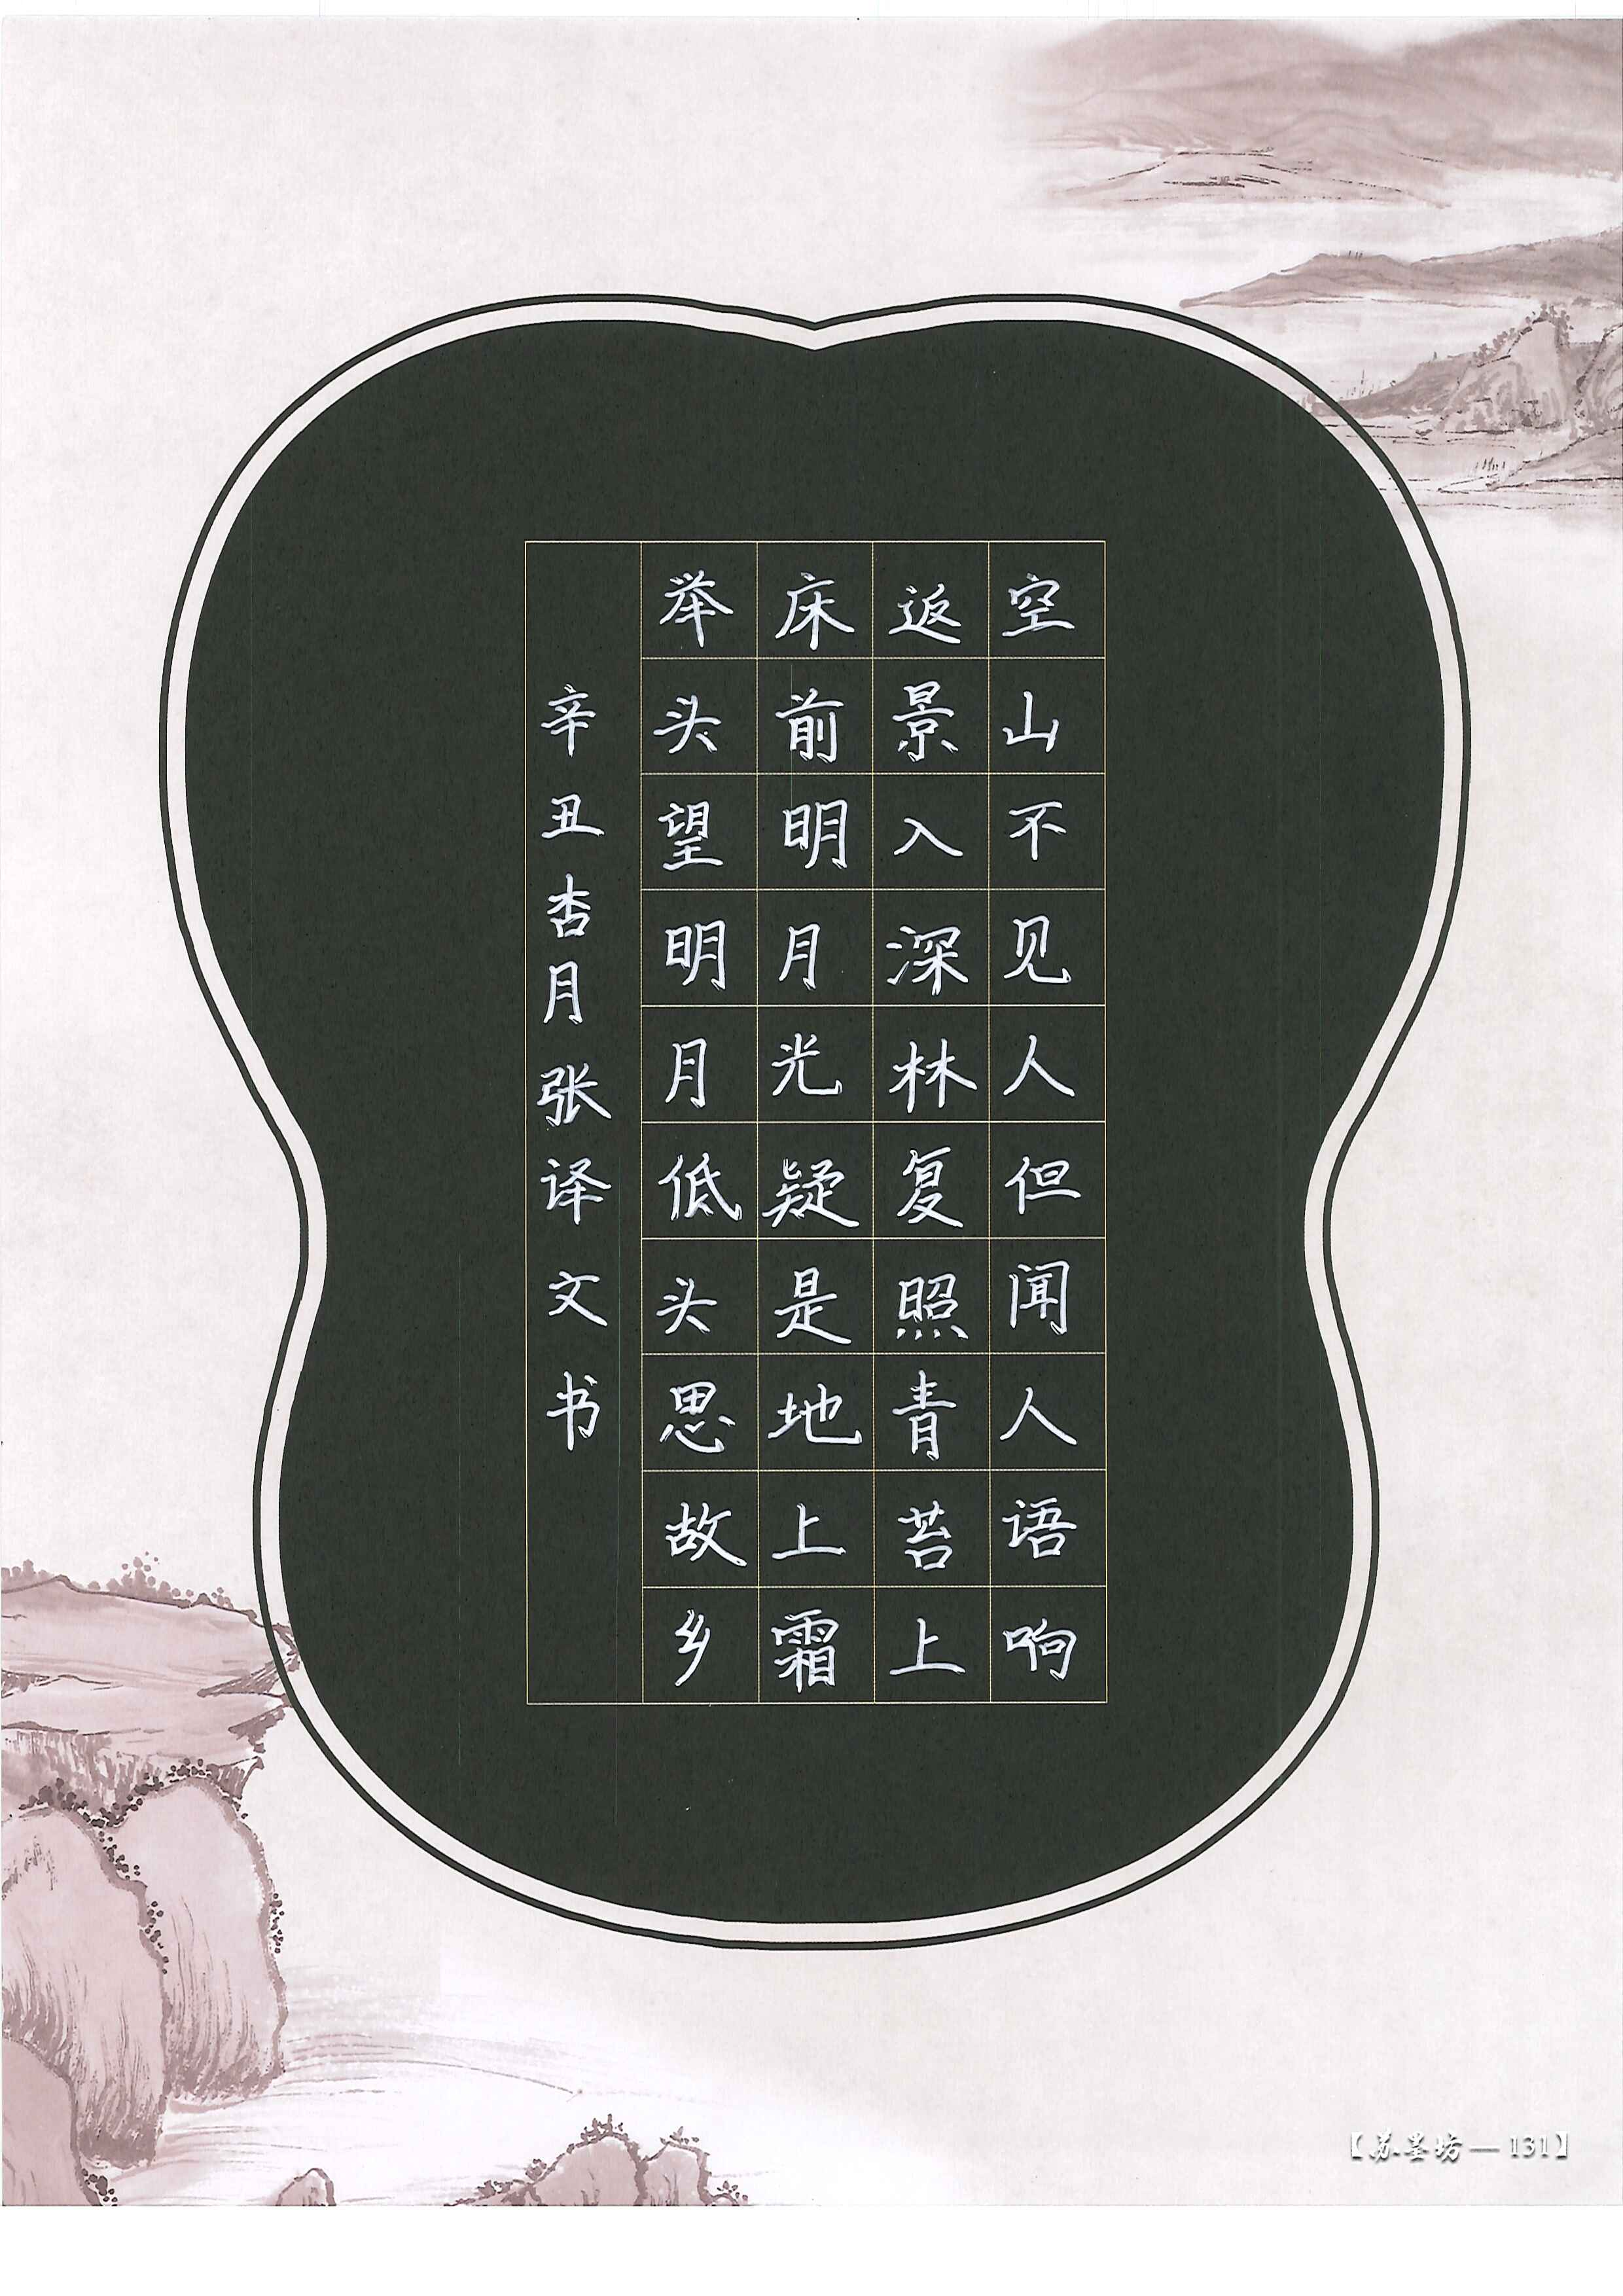 空山不见人但闻人语响
返景入深林复照青苔上
床前明月光疑是地上霜
举头望明月低头思故乡
辛丑杏月张译文书
【苏墨坊—131】